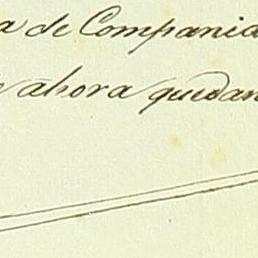 de Compania
ahora quedan